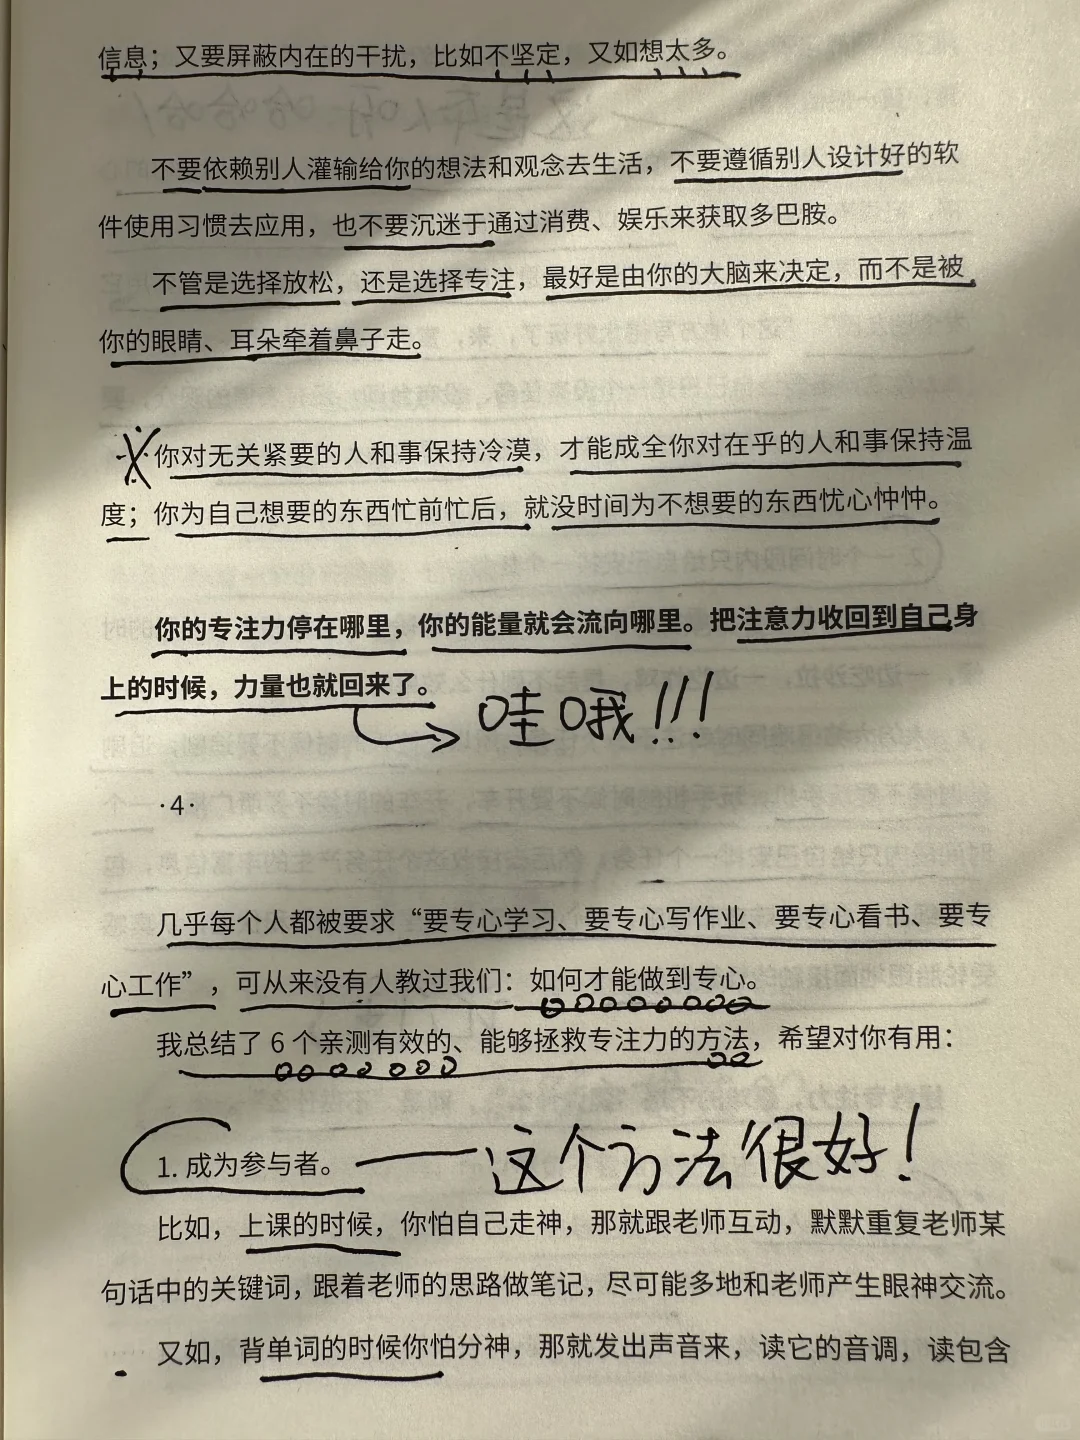 信息；又要屏蔽内在的干扰，比如不坚定，又如想太多。
不要依赖别人灌输给你的想法和观念去生活，不要遵循别人设计好的软
件使用习惯去应用，也不要沉迷于通过消费、娱乐来获取多巴胺。
不管是选择放松，还是选择专注，最好是由你的大脑来决定，而不是被
你的眼睛、耳朵牵着鼻子走。
你对无关紧要的人和事保持冷漠，才能成全你对在乎的人和事保持温
度；你为自己想要的东西忙前忙后，就没时间为不想要的东西忧心忡忡。
你的专注力停在哪里，你的能量就会流向哪里。把注意力收回到自己身
上的时候，力量也就回来了。
哇哦!!!
·4·
几乎每个人都被要求“要专心学习、要专心写作业、要专心看书、要专
心工作”，可从来没有人教过我们：如何才能做到专心。
我总结了 6 个亲测有效的、能够拯救专注力的方法，希望对你有用：
1. 成为参与者。
这个方法很好!
比如，上课的时候，你怕自己走神，那就跟老师互动，默默重复老师某
句话中的关键词，跟着老师的思路做笔记，尽可能多地和老师产生眼神交流。
又如，背单词的时候你怕分神，那就发出声音来，读它的音调，读包含